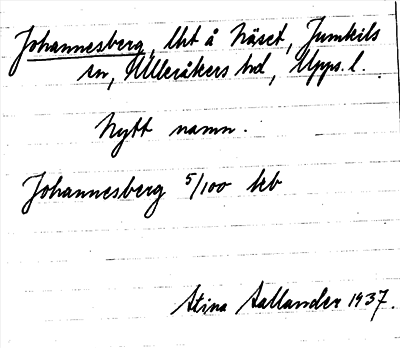 Johannesberg, lht å Näset, Jumkils
sn, Ulleråkers hd, Upps. l.
Nytt namn.
Johannesberg 5/100 krb
Stina Sallander 1937.